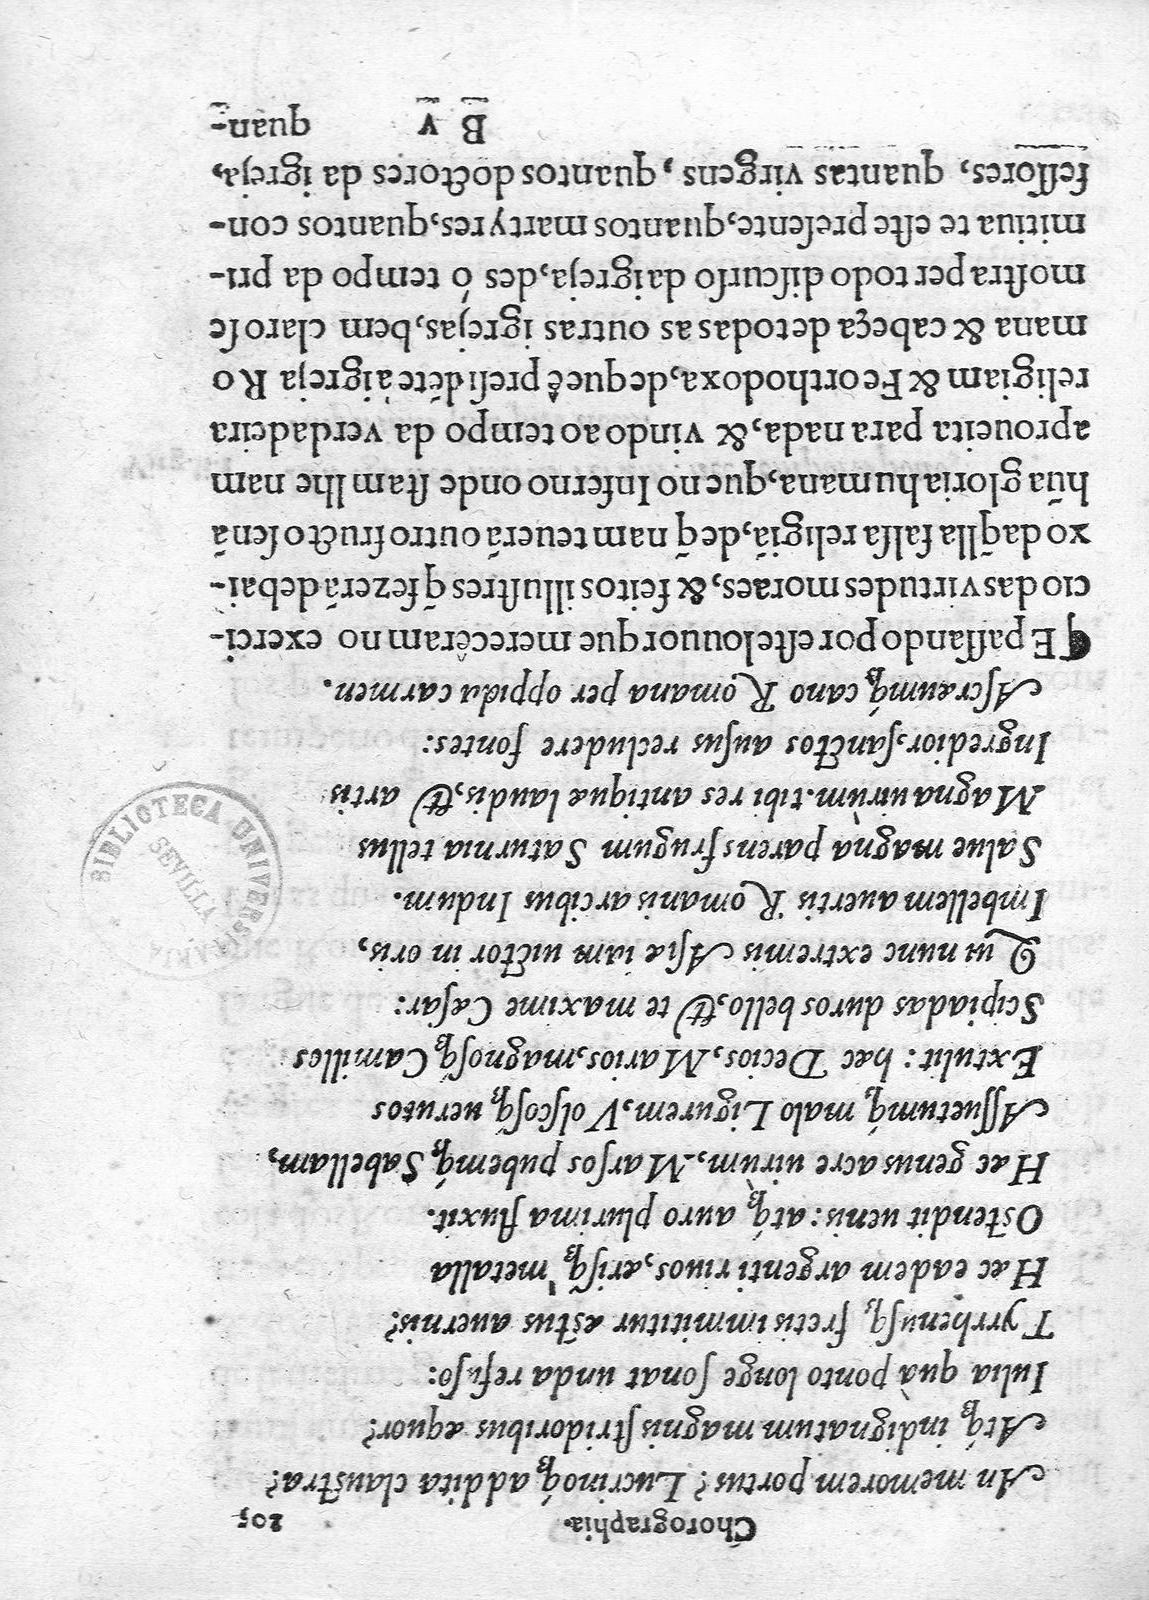 Chorographia. 205
An memorem portus? Lucrinoq́ꝫ addita clauſtra?
Atq́ꝫ indignatum magnis ſtridoribus æquor?
Iulia quà ponto longe ſonat unda refuſo:
Tyrrhenuſqꝫ fretis immittitur æſtus auernis?
Hæc eadem argenti riuos, æriſqꝫ metalla
Oſtendit uenis: atq́ꝫ auro plurima fluxit.
Hæc genus acre uirùm, Marſos pubemq́ꝫ Sabellam,
Aſſuetumq́ꝫ malo Ligurem, Volſcoſqꝫ uerutos
Extulit: hæc Decios, Marios, magnoſqꝫ Camillos
Scipiadas duros bello, & te maxime Cæſar:
Qui nunc extremis Aſiæ iam uictor in oris,
Imbellem auertis Romanis arcibus Indum.
Salue magna parens frugum Saturnia tellus
Magna uirùm. tibi res antiquæ laudis, & artis
Ingredior, ſanctos auſus recludere fontes:
Aſcræumq́ꝫ cano Romana per oppida carmen.
¶ E paſſando por eſte louuor que merecêram no exerci-
cio das virtudes moraes, & feitos illuſtres q̃ fezerã debai-
xo daq̃lla falſa religiã, de q̃ nam teuerã outro fructo ſenã
hũa gloria humana, que no Inferno onde ſtam lhe nam
aproueita para nada, &, vindo ao tempo da verdadeira
religiam & Fe orthodoxa, de que ê preſidẽte a igreja Ro
mana & cabeça de todas as outras igrejas, bem claro ſe
moſtra per todo diſcurſo da igreja, des ó tempo da pri-
mitiua te eſte preſente, quantos martyres, quantos con-
feſſores, quantas virgens, quantos doctores da igreja,
B v quan-
BIBLIOTECA UNIVERSITARIA
SEVILLA